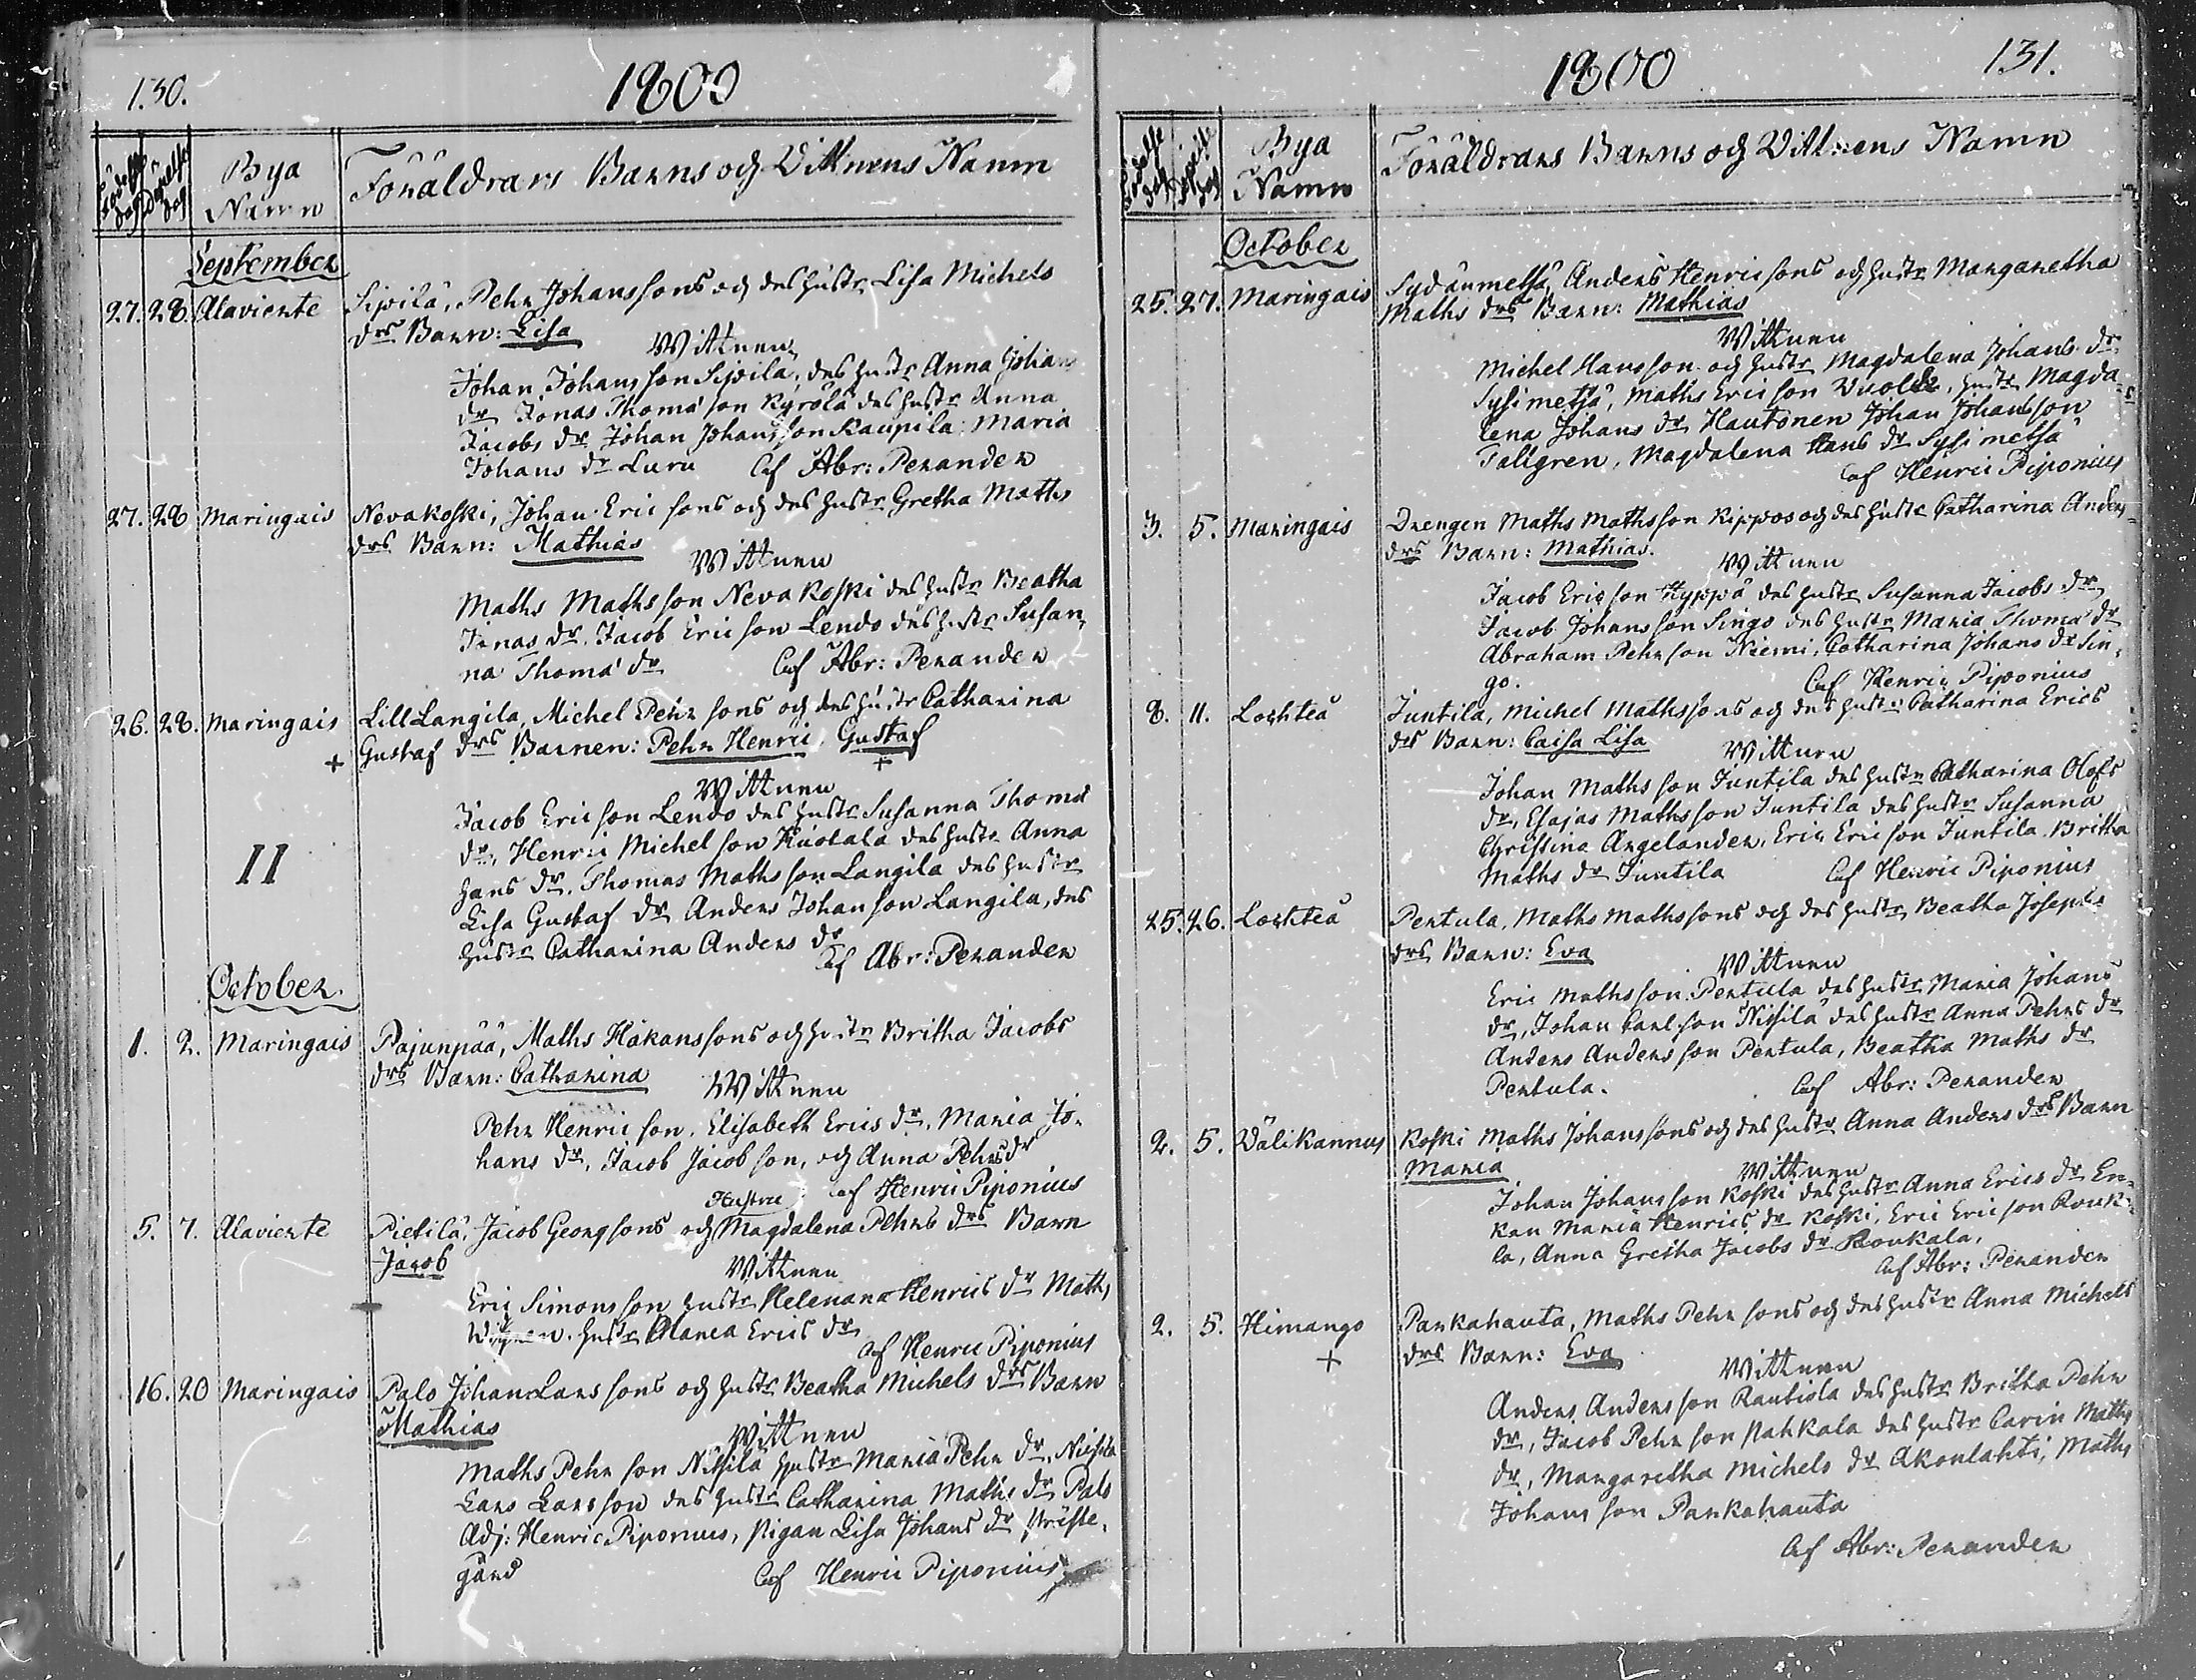 130.
1800
Födelse dag
Döpelse dag
Bya Namn
Föräldrars Barns och Vittnens Namn
September
27. 28. Alavierte Sipilä, Pehr Johanssons och des hustr Lisa Michels
drs Barn: Lisa
Wittnen
Johan Johansson Sipilä, des hustr Anna Johans
dr Jonas Thomæson Kyrölä des hustr Anna
Jacobs dr Johan Johansson Kaupila, Maria
Johans dr Luru Af Abr: Perander
27. 28 Maringais Nevakoski, Johan Ericsons och des hustr Gretha Maths
drs Barn: Mathias
Wittnen
Maths Mathsson Nevakoski des hustr Beatha
Jonas dr. Jacob Ericson Lendo des hustr Susan,
na Thomæ dr Af Abr: Perander
26. 28. Maringais Lill Langila, Michel Pehrsons och des hustr Catharina
+ Gustaf drs Barnen: Pehr Henric, Gustaf
+
Wittnen
Jacob Ericson Lendo des hustr Susanna Thomæ
dr, Henric Michelson Kuotala des hustr Anna
Hans dr. Thomas Mathsson Langila des hustr
II
Lisa Gustaf dr Anders Johanson Langila, des
hustr Catharina Anders dr
Af Abr: Perander
October
1. 2. Maringais Pajunpää, Maths Håkanssons och hustr Britha Jacobs
drs Barn: Catharina
Wittnen
Pehr Henricson, Elisabeth Erics dr, Maria Jo,
hans dr, Jacob Jacobson, och Anna Pehrs dr
af Henric Piponius
Hustru
5. 7. Alavierte Pietilä, Jacob Georgsons och Magdalena Pehrs drs Barn
Jacob
Wittnen
Eric Simonsson hustr Helena Henrics dr Maths
hustr Maria Erics dr
af Henric Piponius
16. 20 Maringais Palo Johan Larssons och hustr Beatha Michels drs Barn
Mathias
Wittnen
Maths Pehrson Nissilä hustr Maria Pehr dr, Nissilä
Lars Larsson des hustr Catharina Maths dr Palo
Adj: Henric Piponius, Pigan Lisa Johans dr Präste,
gård Af Henric Piponius
1800
131.
Födelse dag
Döpelse dag
Bya Namn
Föräldrars Barns och Vittnens Namn
October
25. 27. Maringais Sydänmetsä, Anders Henricsons och hustr Margaretha
Maths drs Barn: Mathias
Wittnen
Michel Hansson och hustr Magdalena Johans dr
Sysimetsä, Maths Ericson Vuolle, hustr Magda,
lena Johans dr Hautonen Johan Johansson
Taligren, Magdalena Hans dr Sysimetsä
af Henric Piponius
3. 5. Maringais Drengen Maths Mathsson Kippo och des hustr Catharina Anders
drs Barn: Mathias.
Wittnen
Jacob Ericson Hyppä des hustr Susanna Jacobs dr
Jacob Johansson Singo des hustr Maria Thomæ dr
Abraham Pehrson Niemi, Catharina Johans dr Sin,
go. Af Henric Piponius
8. 11. Lochteå Juntila, Michel Mathssons och des hustr Catharina Erics
drs Barn: Caisa Lisa
Wittnen
Johan Mathsson Juntila des hustr Catharina Olofs
dr, Esajas Mathsson Juntila des hustr Susanna
Christina Argelander, Eric Ericson Juntila, Britha
Maths dr Juntila Af Henric Piponius
25. 26. Lochteå Pertula, Maths Mathssons och des hustr Beatha Josephs
drs Barn: Eva
Wittnen
Eric Mathsson Pertula des hustr Maria Johans
dr, Johan Carlson Nissilä des hustr Anna Pehrs dr
Anders Andersson Pertula, Beatha Maths dr
Pertula. Af Abr: Perander
2. 5. Wälikannus Koski Maths Johanssons och des hustr Anna Anders drs Barn
Maria
Wittnen
Johan Johansson Koski des hustr Anna Erics dr En,
kan Maria Henrics dr Koski, Eric Ericson Rouk,
la, Anna Gretha Jacobs dr Roukala,
Af Abr: Perander
2. 5. Himango Parkahauta, Maths Pehrsons och des hustr Anna Michels
+ drs Barn: Eva
Wittnen
Anders Andersson Rautiola des hustr Britha Pehr
dr, Jacob Pehrson Pahkala des hustr Carin Maths
dr, Margaretha Michels dr Akonlahti, Maths
Johansson Parkahauta
Af Abr: Perander